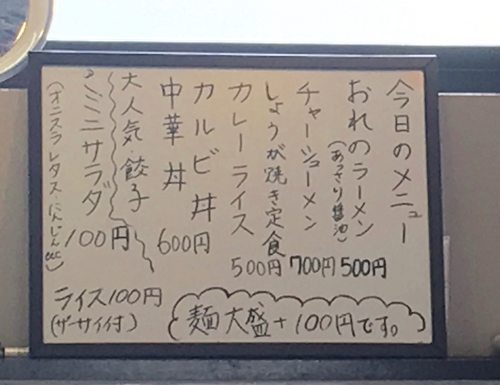 今日のメニュー
おれのラーメン
(あっさり醤油)
500円
チャーシューメン
700円
しょうが焼き定食
500円
カレーライス
カルビ丼
600円
中華丼
大人気餃子
ミニサラダ
100円
(オニスラレタスにんじんetc)
ライス100円
(ザーサイ付)
麺大盛+100円です。